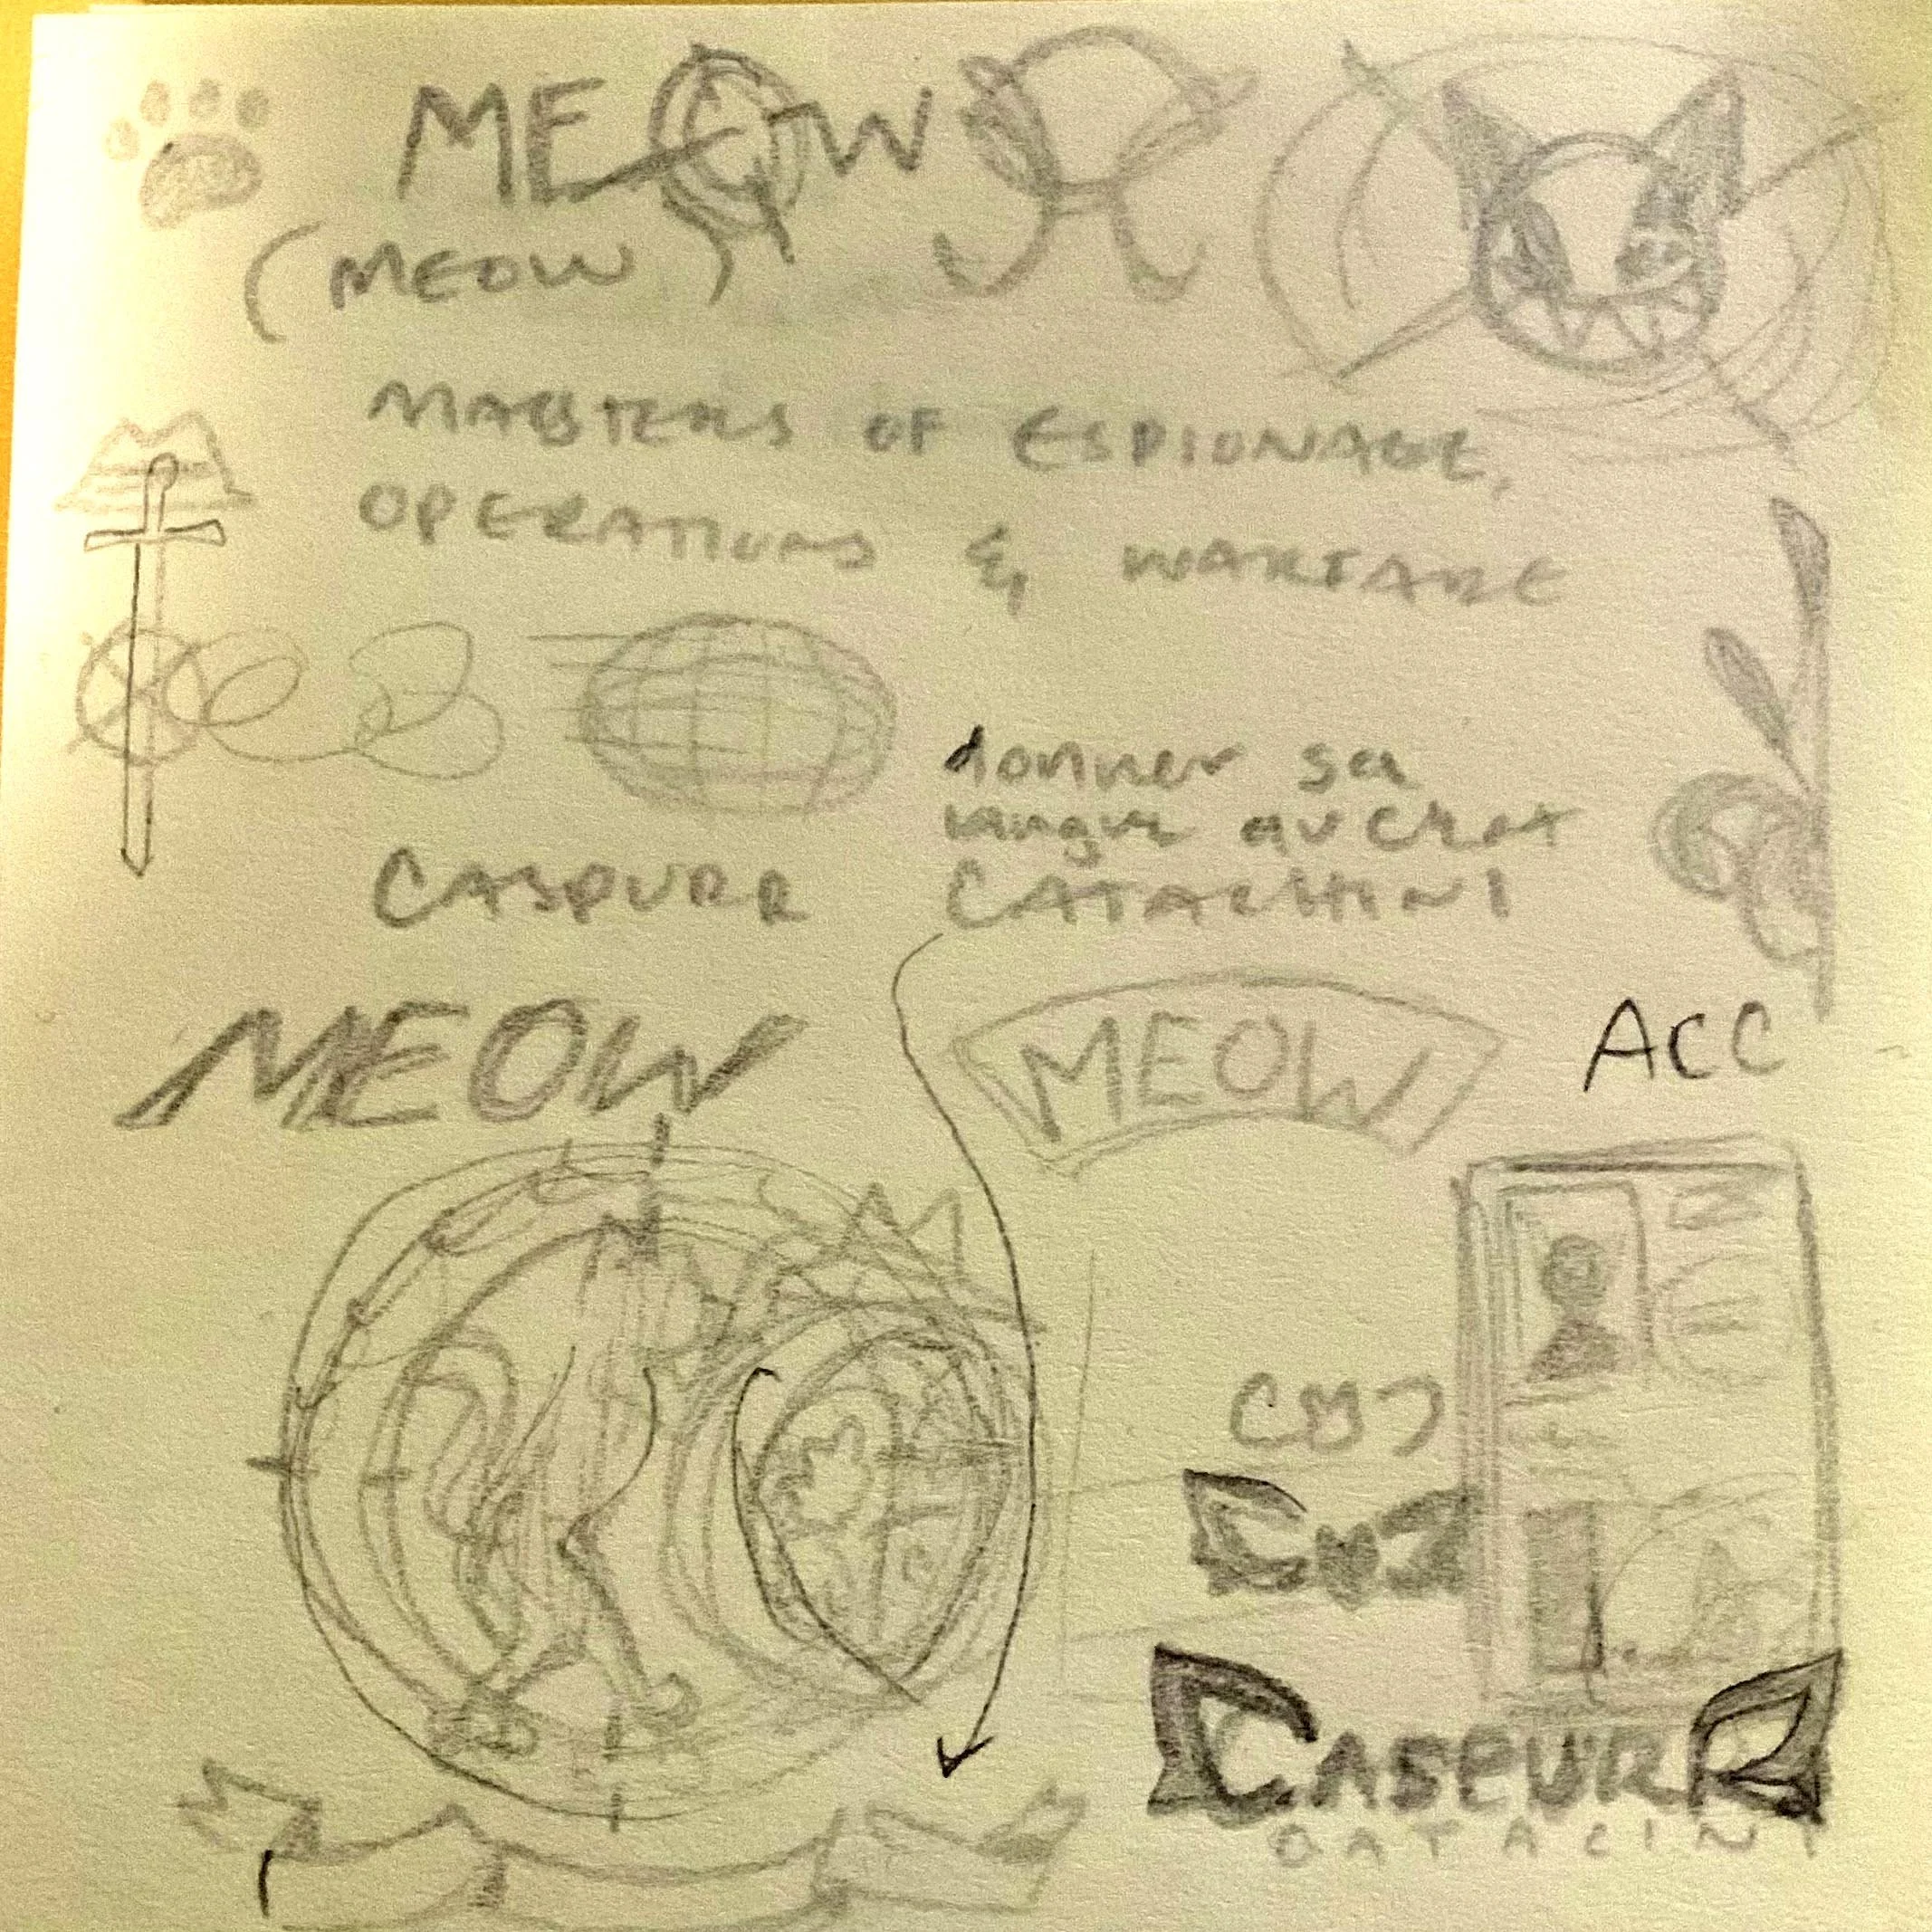 MEOW
(MEOW)
MASTERS OF ESPIONAGE,
OPERATIONS & WARFARE
donner sa
langue au chat
CASPURR
MEOW
MEOW
ACC
CASPURR